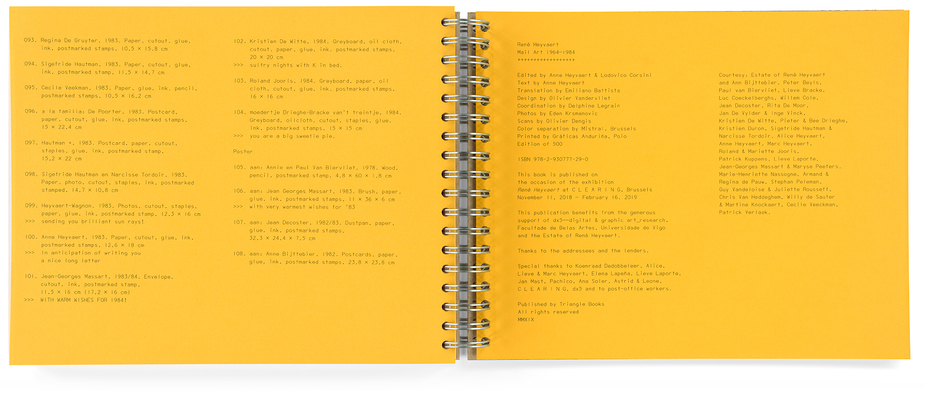 093. Regina De Gruyter, 1983. Paper, cutout, glue,
ink, postmarked stamps, 10,5 × 15,8 cm
094. Sigefride Hautman, 1983. Paper, cutout, glue,
ink, postmarked stamp, 11,5 × 14,7 cm
095. Cecile Veekman, 1983. Paper, glue, ink, pencil,
postmarked stamps, 10,5 × 16,2 cm
096. a la familia: De Poorter, 1983. Postcard,
paper, cutout, glue, ink, postmarked stamp,
13 × 22,4 cm
097. Hautman +, 1983. Postcard, paper, cutout,
staples, glue, ink, postmarked stamp,
13,2 × 22 cm
098. Sigefride Hautman en Narcisse Tordoir, 1983.
Paper, photo, cutout, staples, ink, postmarked
stamped, 14,7 × 10,8 cm
099. Heyvaert-Wagnon, 1983. Photos, cutout, staples,
paper, glue, ink, postmarked stamp, 12,3 × 16 cm
>>> sending you brilliant sun rays!
100. Anne Heyvaert, 1983. Paper, cutout, glue, ink,
postmarked stamps, 12,6 × 18 cm
>>> in anticipation of writing you
a nice long letter
101. Jean-Georges Massart, 1983/84. Envelope,
cutout, ink, postmarked stamp,
11,5 × 16 cm (17,2 × 16 cm)
>>> WITH WARM WISHES FOR 1984!
102. Kristien De Witte, 1984. Greyboard, oil cloth,
cutout, paper, glue, ink, postmarked stamps,
20 × 20 cm
>>> sultry nights with K in bed.
103. Roland Jooris, 1984. Greyboard, paper, oil
cloth, cutout, glue, ink, postmarked stamps,
16 × 16 cm
104. moedertje Drieghe-Bracke van't treintje, 1984.
Greyboard, oilcloth, cutout, staples, glue,
ink, postmarked stamps, 15 × 15 cm
>>> you are a big sweetie pie.
Poster
105. aan: Annie en Paul Van Biervliet, 1978. Wood,
pencil, postmarked stamps, 4,8 × 60 × 1,8 cm
106. aan: Jean Georges Massart, 1983. Brush, paper,
glue, ink, postmarked stamps, 11 × 36 × 6 cm
>>> with very warmest wishes for '83
107. aan: Jean Decoster, 1982/83. Dustpan, paper,
glue, ink, postmarked stamps,
32,3 × 24,4 × 7,5 cm
108. aan: Anne Bijttebier, 1982. Postcards, paper,
glue, ink, postmarked stamps, 23,8 × 23,8 cm
René Heyvaert
Mail Art 1964-1984
******************
Edited by Anne Heyvaert & Lodovico Corsini
Text by Anne Heyvaert
Translation by Emiliano Battista
Design by Olivier Vandervliet
Coordination by Delphine Legrain
Photos by Eden Kromanovic
Scans by Olivier Dengis
Color separation by Mistral, Brussels
Printed by Gráficas Anduriña, Poio
Edition of 500
ISBN 978-2-930777-29-0
This book is published on
the occasion of the exhibition
René Heyvaert at C L E A R I N G, Brussels
November 11, 2018 - February 16, 2019
This publication benefits from the generous
support of dx5–digital & graphic art_research,
Facultade de Belas Artes, Universidade de Vigo
and the Estate of René Heyvaert.
Thanks to the addressees and the lenders.
Special thanks to Koenraad Dedobbeleer, Alice,
Lieve & Marc Heyvaert, Elena Lapeña, Lieve Laporte,
Jan Mast, Pachico, Ana Soler, Astrid & Leone,
C L E A R I N G, dx5 and to post-office workers.
Published by Triangle Books
All rights reserved
MMXIX
Courtesy: Estate of René Heyvaert
and Ann Bijttebier, Peter Bevin,
Paul van Biervliet, Lieve Bracke,
Luc Coeckelberghs, Willem Cole,
Jean Decoster, Rita De Moor,
Jan De Vylder & Inge Vinck,
Kristien De Witte, Pieter & Bee Drieghe,
Kristien Duron, Sigefride Hautman &
Narcisse Tordoir, Alice Heyvaert,
Anne Heyvaert, Marc Heyvaert,
Roland & Mariette Jooris,
Patrick Kuppens, Lieve Laporte,
Jean-Georges Massart & Maryse Peeters,
Marie-Henriette Nassogne, Armand &
Regina de Pauw, Stephan Peleman,
Guy Vandeloise & Juliette Rousseff,
Chris Van Heddeghem, Willy de Sauter
& Martine Knockaert, Cecile Veeckman,
Patrick Verlaak.